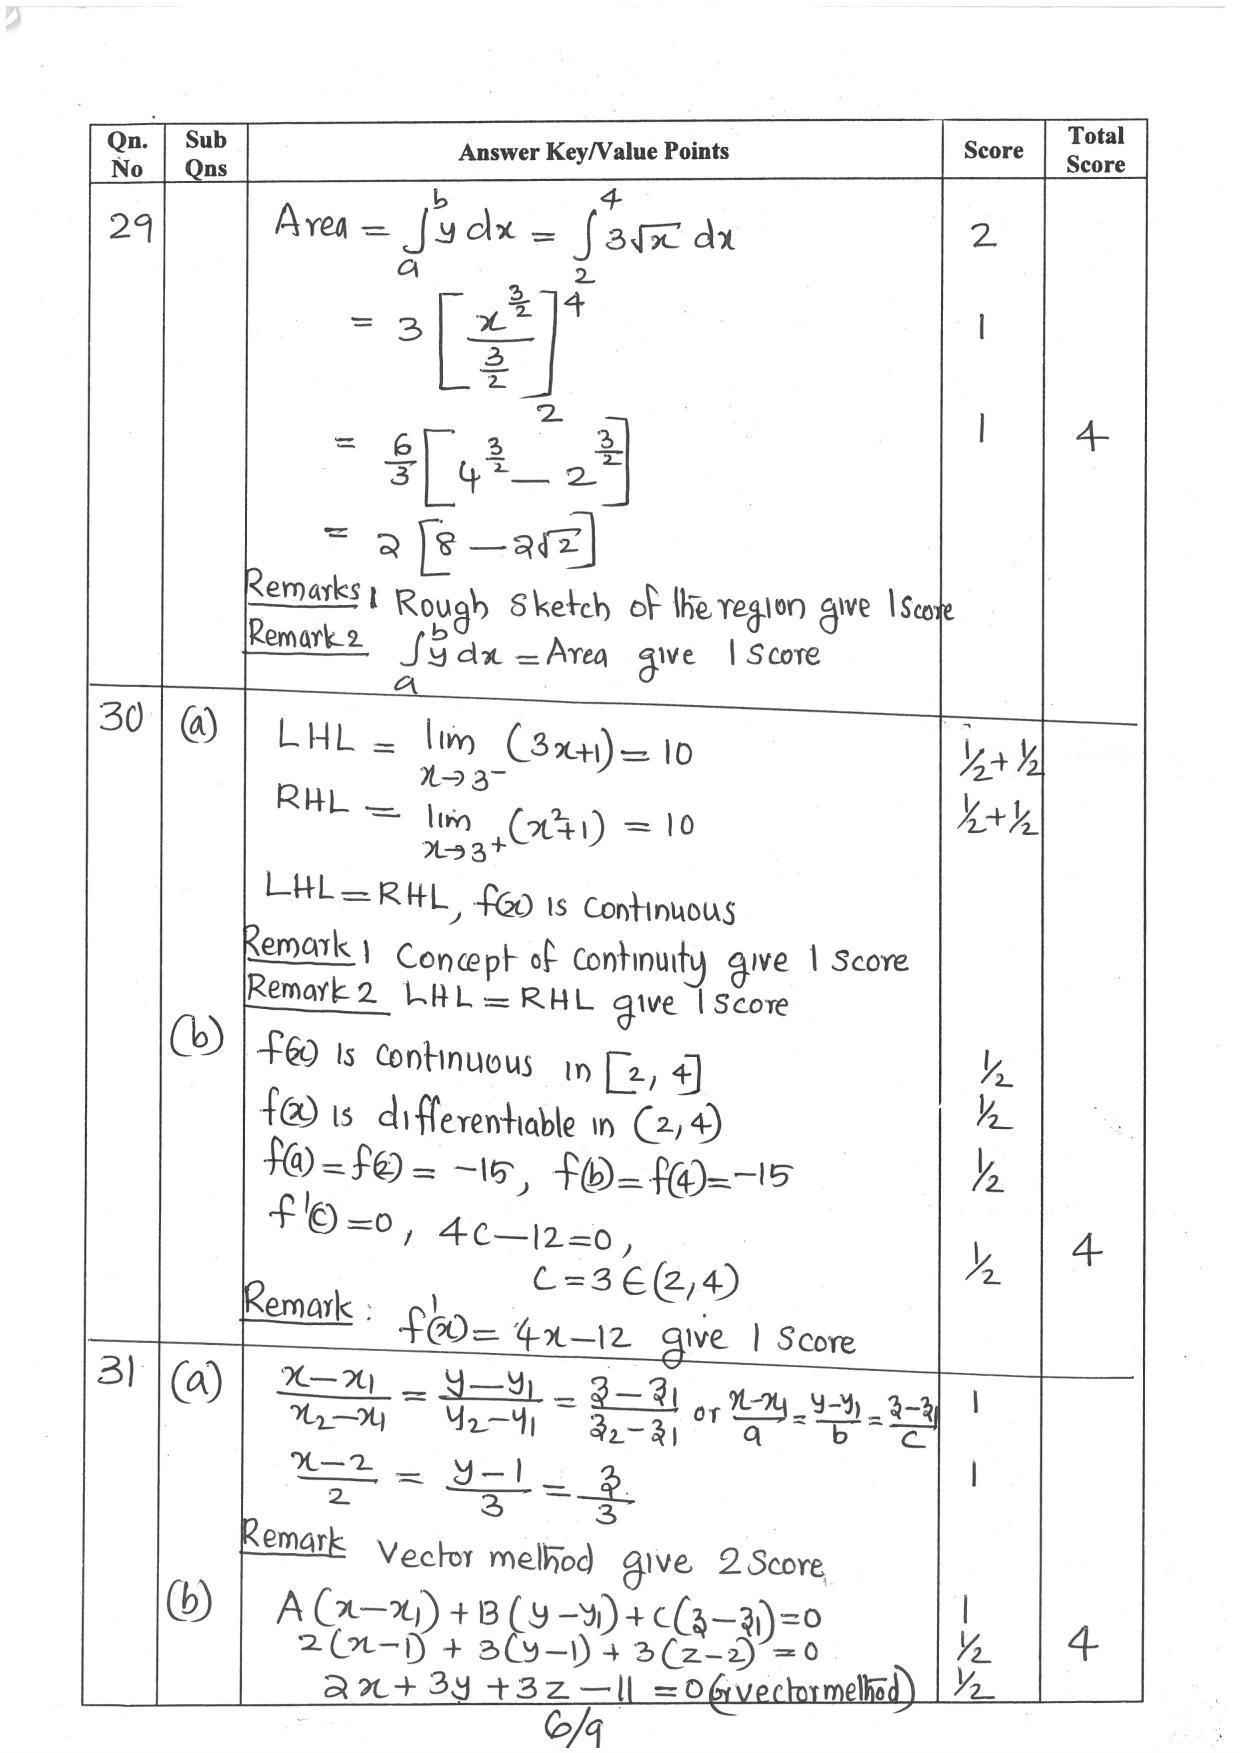 Qn. No Sub Qns Answer Key/Value Points Score Total Score
29 Area = ∫_a^b y dx = ∫_2^4 3√x dx 2
= 3 [x^(3/2) / (3/2)]_2^4 1
= 6/3 [4^(3/2) — 2^(3/2)] 1 4
= 2 [8 — 2√2]
Remarks 1 Rough Sketch of the region give 1 Score
Remark 2 ∫_a^b y dx = Area give 1 score
30 (a) LHL = lim_(x→3⁻) (3x+1) = 10 ½ + ½
RHL = lim_(x→3+) (x²+1) = 10 ½+½
LHL = RHL, f(x) is continuous
Remark 1 Concept of continuity give 1 score
Remark 2 LHL = RHL give 1 score
(b) f(x) is continuous in [2, 4] ½
f(x) is differentiable in (2,4) ½
f(a) = f(2) = -15, f(b) = f(4) = -15 ½
f'(c) = 0, 4c—12=0,
c = 3 ∈ (2,4) ½ 4
Remark : f'(x) = 4x-12 give 1 score
31 (a) (x-x₁)/(x₂-x₁) = (y-y₁)/(y₂-y₁) = (z-z₁)/(z₂-z₁) or (x-x₁)/a = (y-y₁)/b = (z-z₁)/c 1
(x-2)/2 = (y-1)/3 = z/3 1
Remark Vector method give 2 Score
(b) A(x-x₁) + B(y-y₁) + C(z-z₁) = 0 1
2(x-1) + 3(y-1) + 3(z-2) = 0 ½ 4
2x + 3y + 3z - 11 = 0 (or vector method) ½
6/9